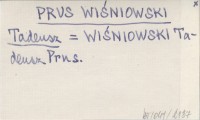 PRUS WIŚNIOWSKI
Tadeusz = WIŚNIOWSKI Ta-
deusz Prus.